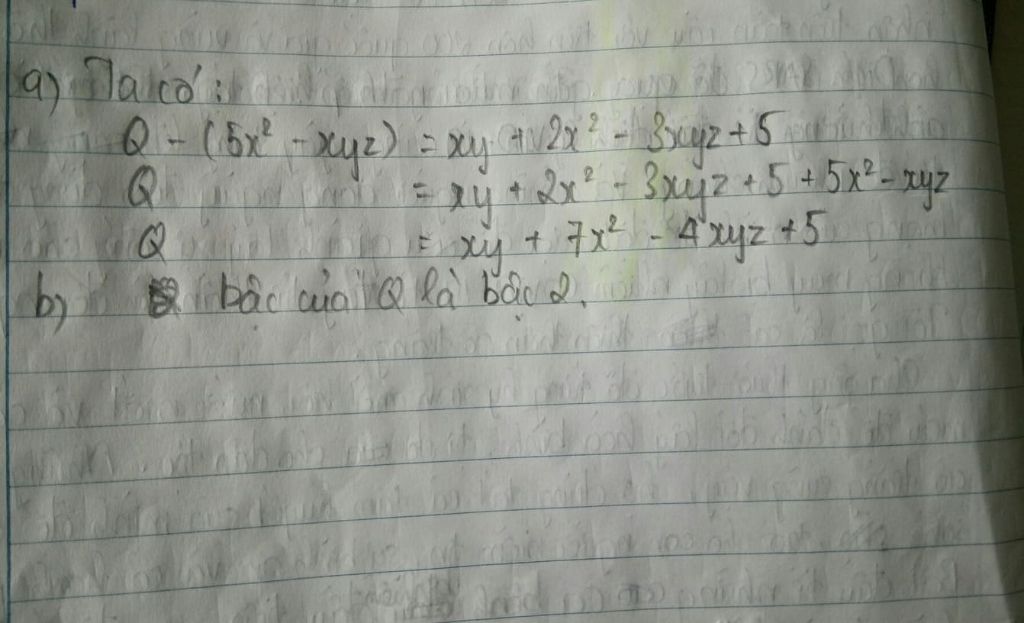 a) Ta có:
Q - (5x² - xyz) = xy + 2x² - 3xyz + 5
Q = xy + 2x² - 3xyz + 5 + 5x² - xyz
Q = xy + 7x² - 4xyz + 5
b) bậc của Q là bậc 2.